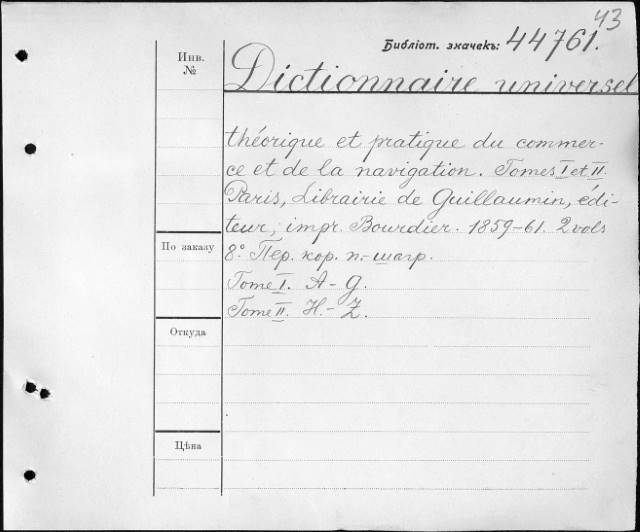 43
Библіот. значекъ: 44761.
Инв.
№
Dictionnaire universel
théorique et pratique du commer-
ce et de la navigation. Tomes I et II.
Paris, Librairie de Guillaumin, édi-
teur, impr. Bourdier. 1859-61. 2 vols
По заказу
8° Пер. кор. п.-шагр.
Tome I. A-G.
Tome II. H.-Z.
Откуда
Цѣна